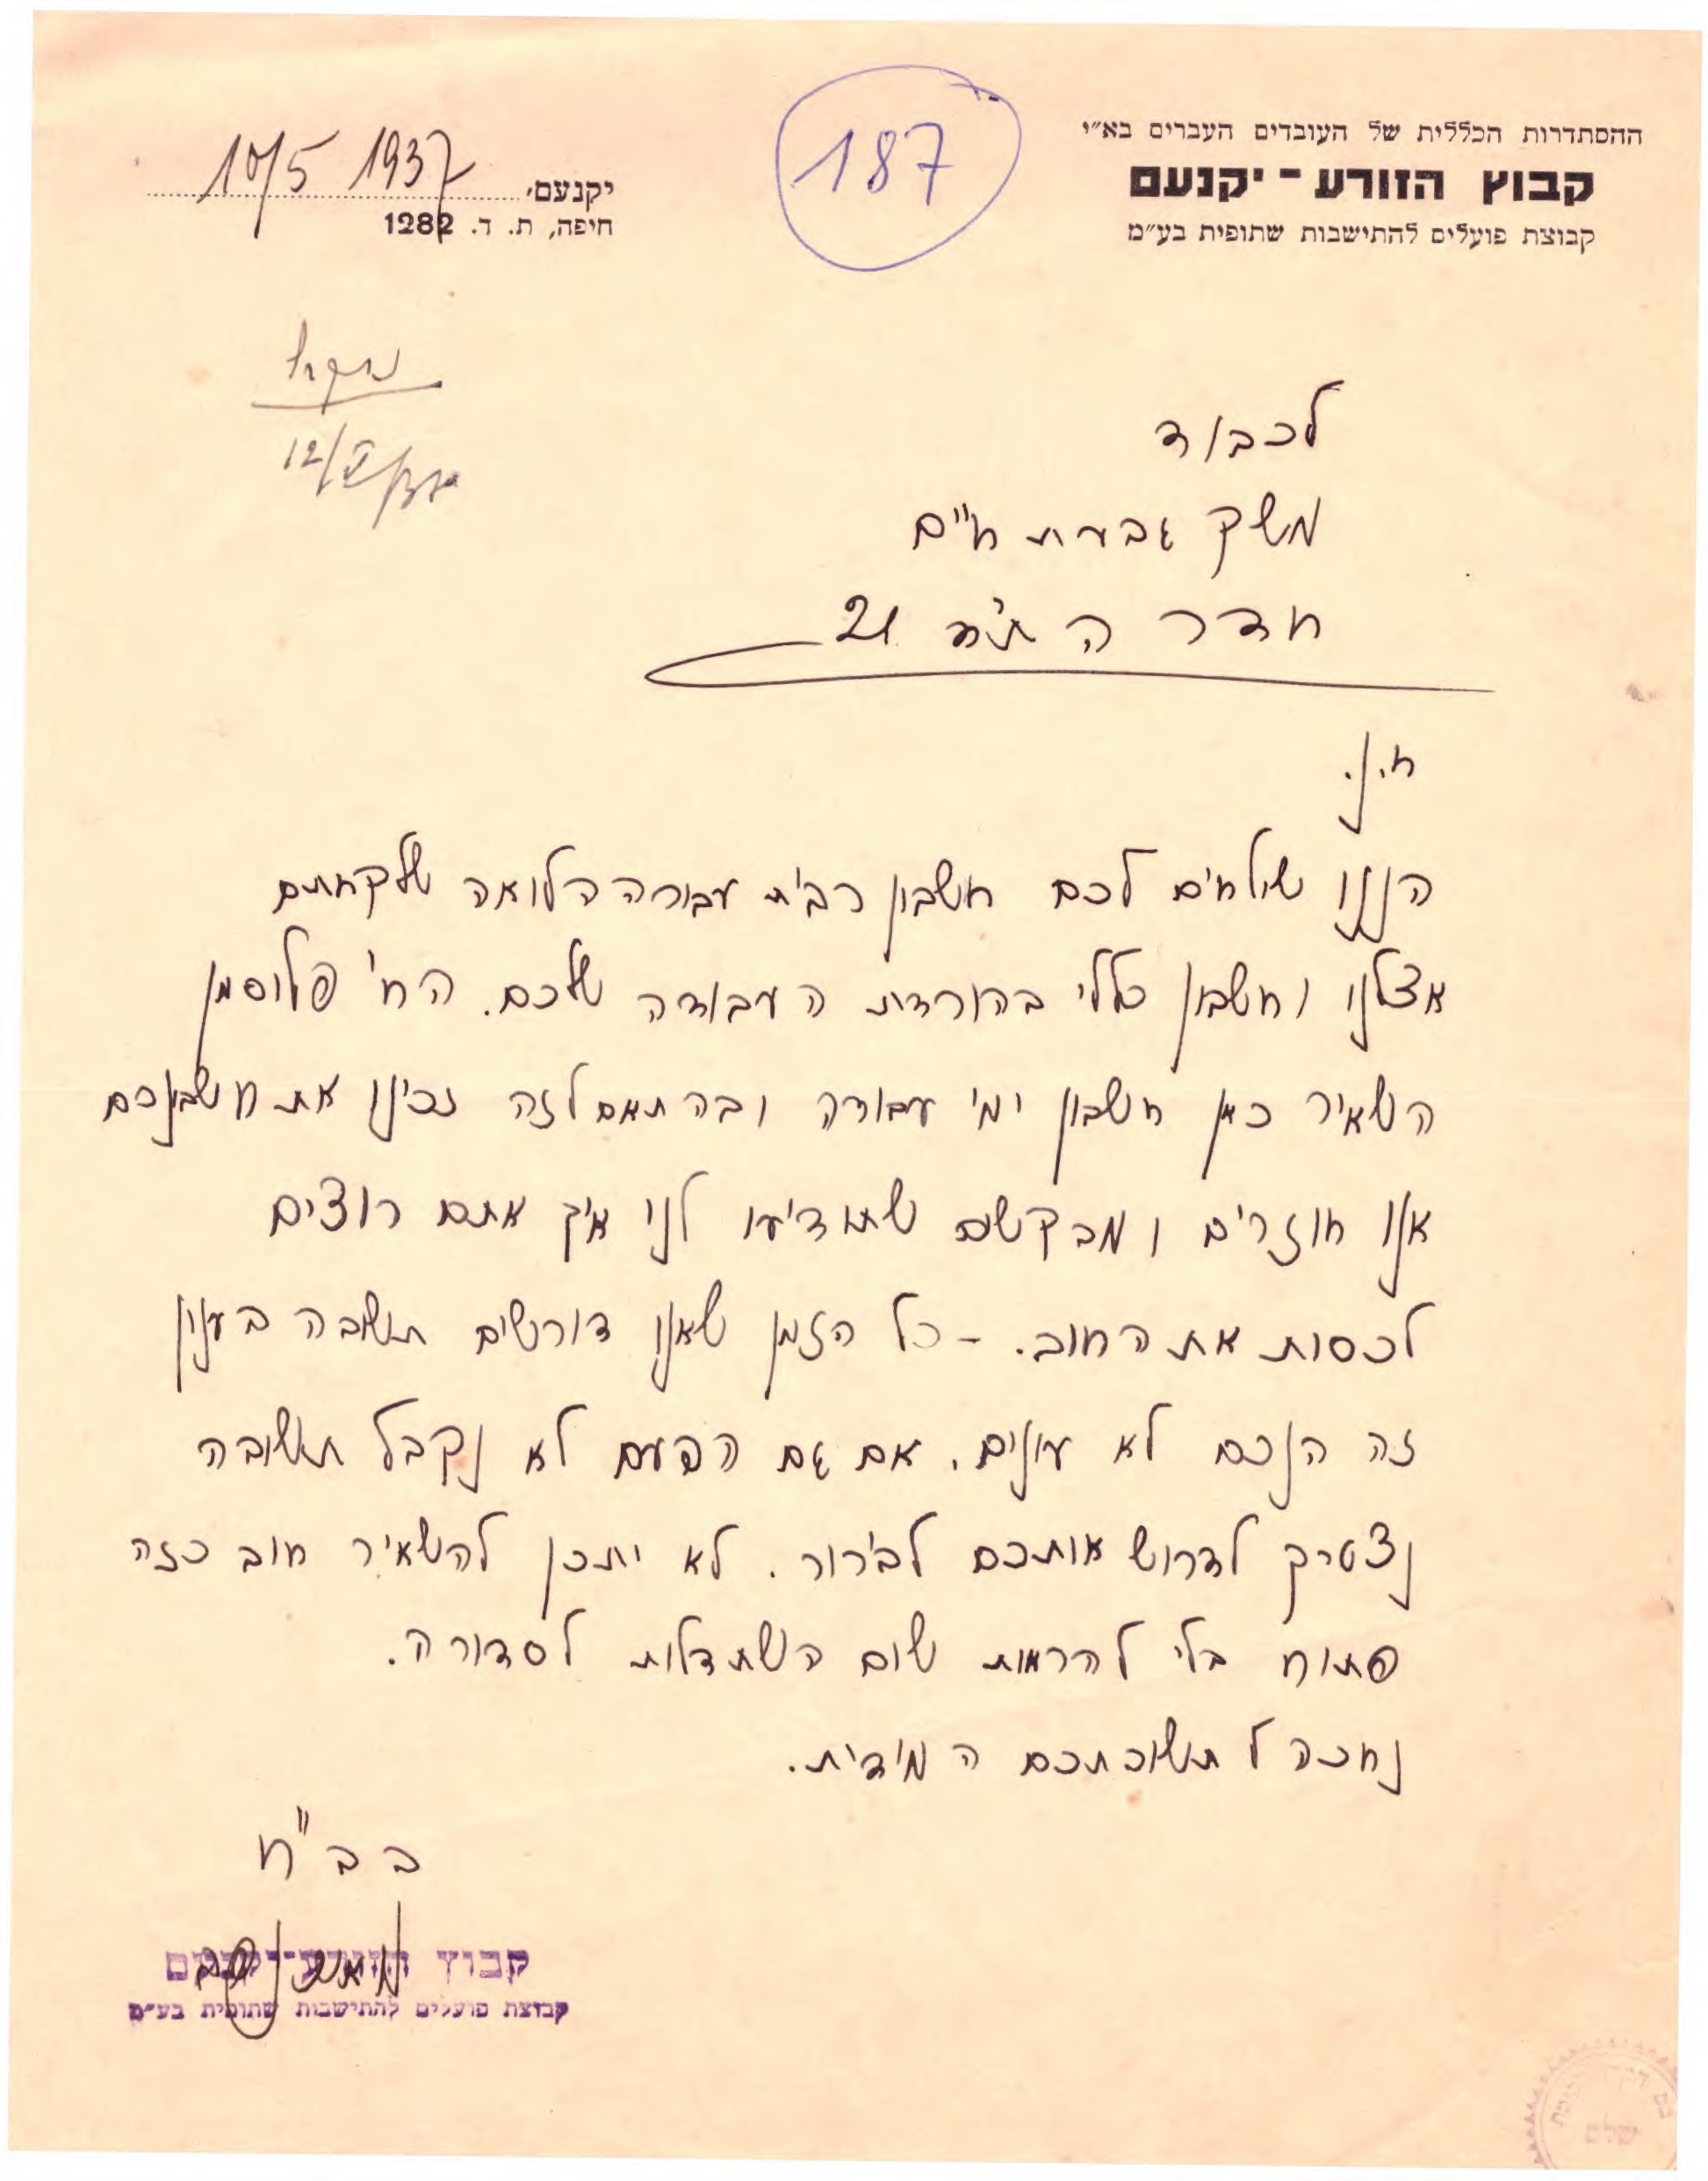 ההסתדרות הכללית של העובדים העברים בא״י
קבוץ הזורע - יקנעם
קבוצת פועלים להתישבות שתופית בע״מ
187
יקנעם, 10/5 1937
חיפה, ת. ד. 1282
נתקבל
12/V
לכבוד
משק גבעת חיים
חדרה ת.ד. 21
ח.נ.
הננו שולחים לכם חשבון רבית עבור ההלואה שלקחתם
אצלנו וחשבון כללי בהורדת העבודה שלכם. הח' פלוסמן
השאיר כאן חשבון ימי עבודה ובהתאם לזה זכינו את חשבונכם
אנו חוזרים ומבקשים שתודיעו לנו איך אתם רוצים
לכסות את החוב. - כל הזמן שאנו דורשים תשובה בענין
זה הנכם לא עונים. אם גם הפעם לא נקבל תשובה
נצטרך לדרוש אותכם לבירור. לא יתכן להשאיר חוב כזה
פתוח בלי להראות שום השתדלות לסדורה.
נחכה לתשובתכם המידית.
בב"ח
קבוץ הזורע-יקנעם
קבוצת פועלים להתישבות שתופית בע״מ